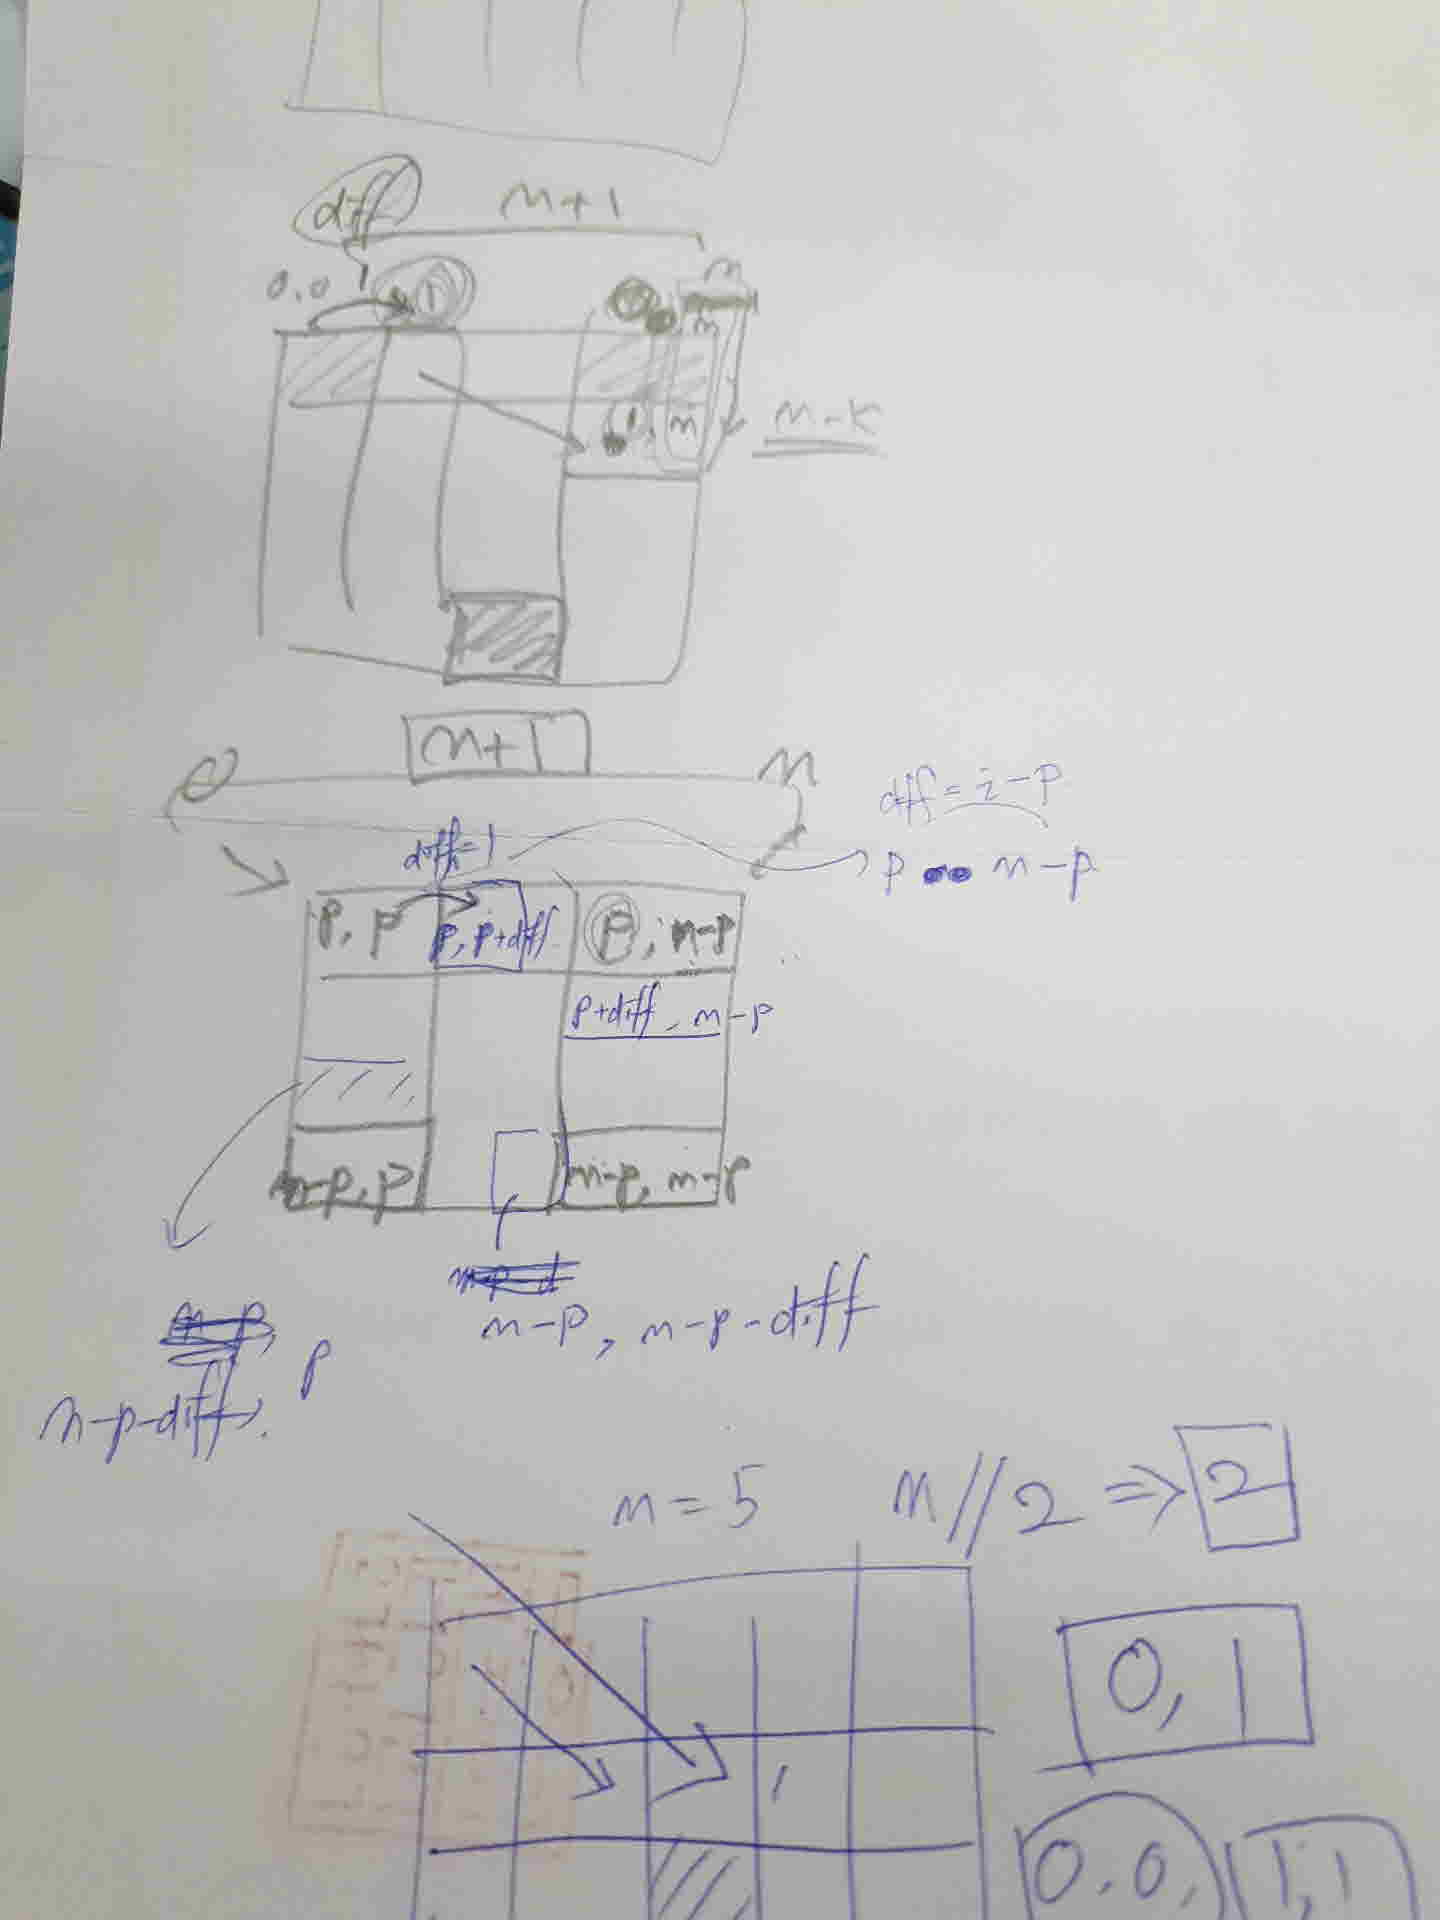 diff
n+1
0.0
1
n
n
1, n
n-k
n+1
0
n
diff = i-p
diff=1
p n-p
p, p
p, p+diff
p, n-p
p+diff, n-p
n-p, p
n-p, n-p
n-p, n-p-diff
p
n-p-diff,
n=5
n//2 ⇒ 2
0, 1
0.0, 1,1